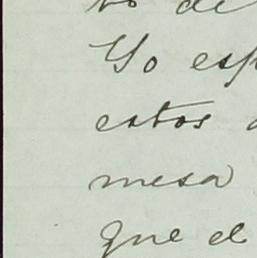 to de
Yo esp
estos
mesa
que el